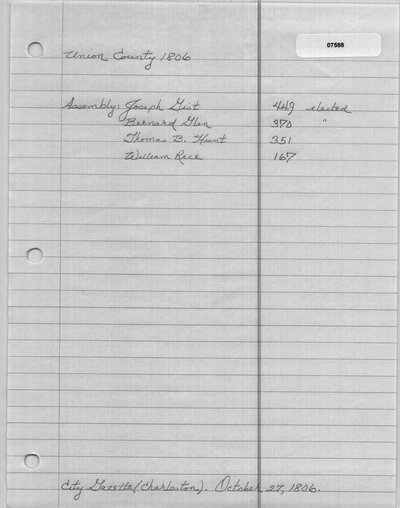 07588
Union County 1806
Assembly: Joseph Gist 449 elected
Bernard Glen 370 "
Thomas B. Hunt 351
William Rice 167
City Gazette (Charleston). October 27, 1806.